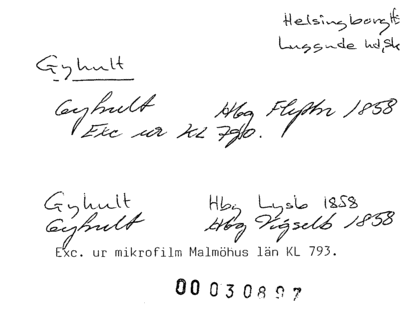 Helsingborg
Luggude hd, Sk
Gyhult
Gyhult Hbg Flyttn 1858
Exc ur KL 790.
Gyhult Hbg Lysb 1858
Gyhult Hbg Vigselb 1858
Exc. ur mikrofilm Malmöhus län KL 793.
00030897